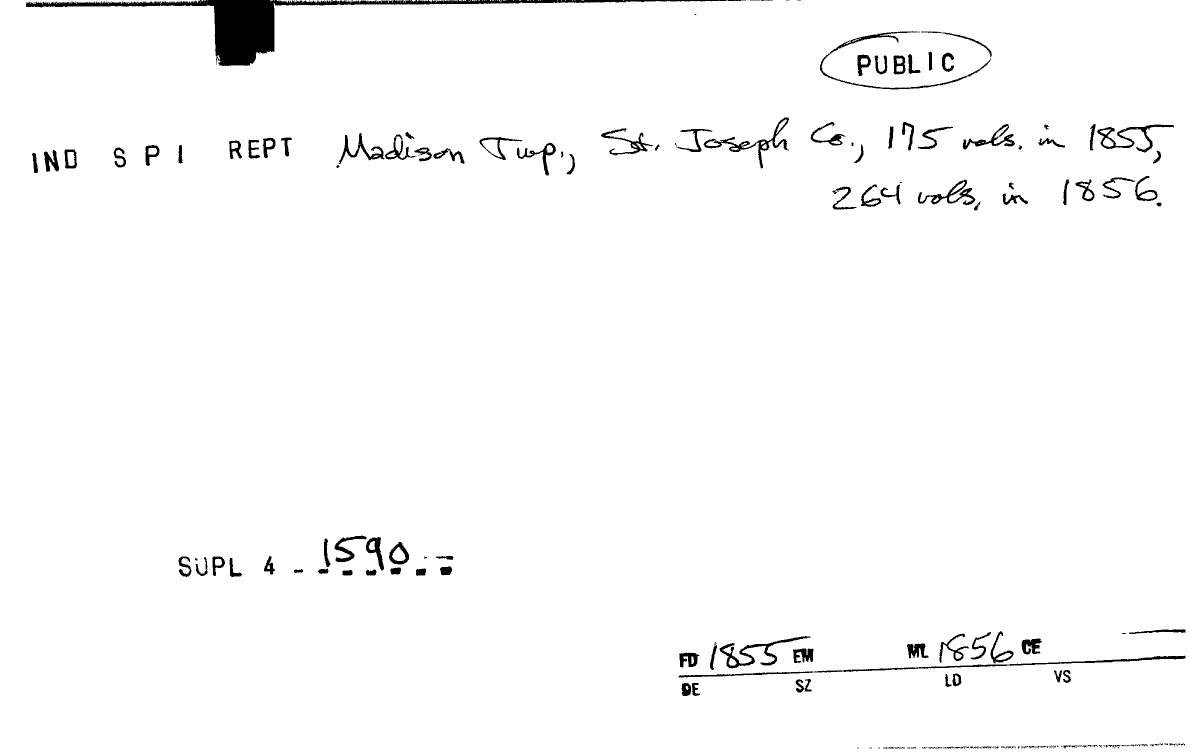 PUBLIC
IND S P I REPT Madison Twp., St. Joseph Co., 175 vols. in 1855,
264 vols. in 1856.
SUPL 4 - 1590
FD 1855 EM ML 1856 CE
DE SZ LD VS